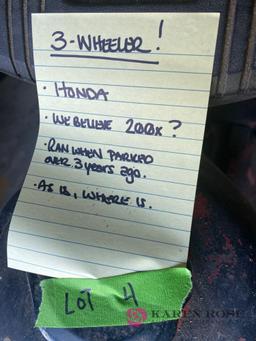 3-WHEELER!
· HONDA
· WE BELIEVE 200X ?
· RAN WHEN PARKED
OVER 3 years ago.
· AS IS, WHERE IS.
LOT 4
KAREN ROSE